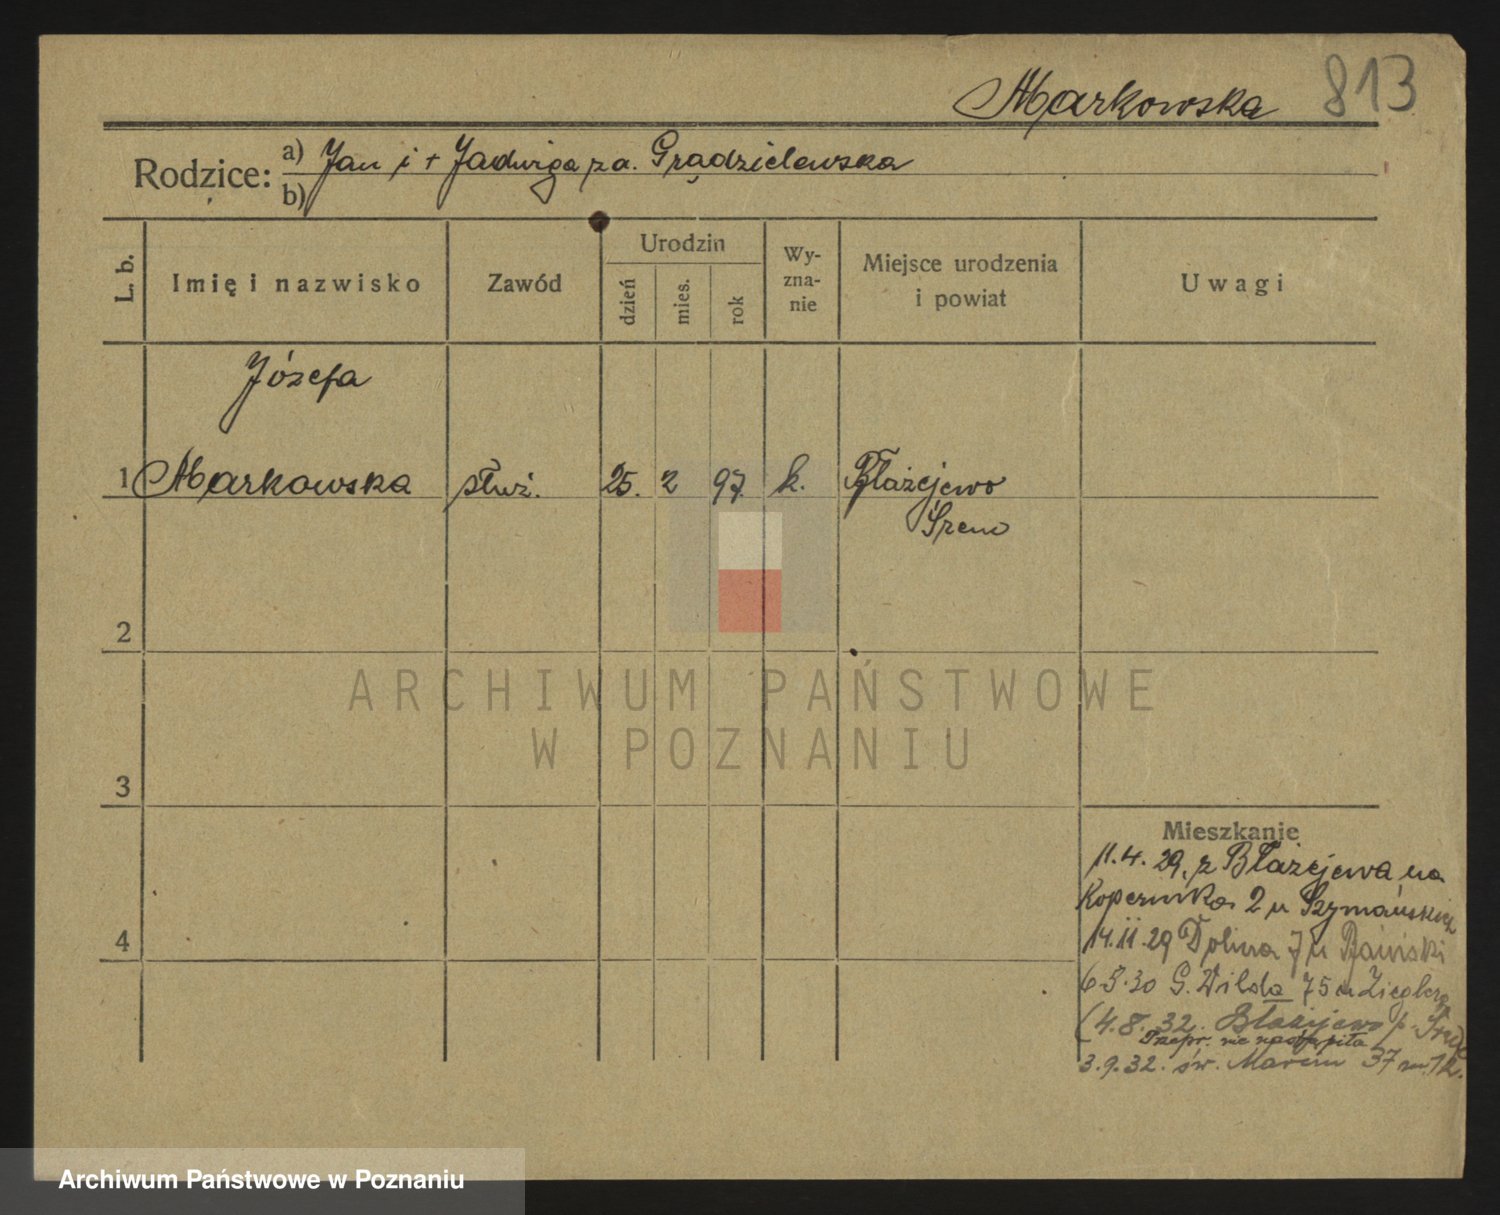 Markowska 813
Rodzice: a) Jan i + Jadwiga z d. Grądzielewska
b)
L. b. Imię i nazwisko Zawód Urodzin Wy-zna-nie Miejsce urodzenia i powiat Uwagi
dzień mies. rok
Józefa
1 Markowska służ. 25. 2 97. k. Błażejewo
Śrem
2
ARCHIWUM PAŃSTWOWE
W POZNANIU
3
Mieszkanie
11.4.29. z Błażejewa na
Kopernika 2 u Szymańskiej
4
14.11.29 Dolina 7 u
6.5.30 G. Wilda 75 u Ziegler
(4.8.32. Błażejewo p. Śrem
nie nastąpiła
3.9.32. św. Marcin 37 m. 12.
Archiwum Państwowe w Poznaniu